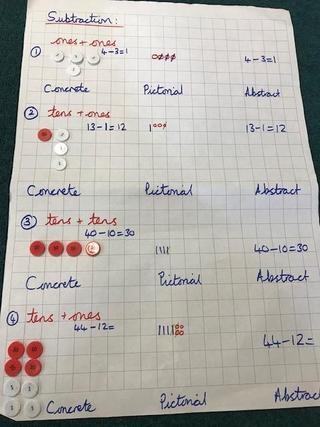 Subtraction:
① ones + ones
4-3=1 4-3=1
Concrete Pictorial Abstract
② tens + ones
13-1=12 13-1=12
Concrete Pictorial Abstract
③ tens + tens
40-10=30
40-10=30
Concrete Pictorial Abstract
④ tens + ones
44-12=
44-12=
Concrete Pictorial Abstrac